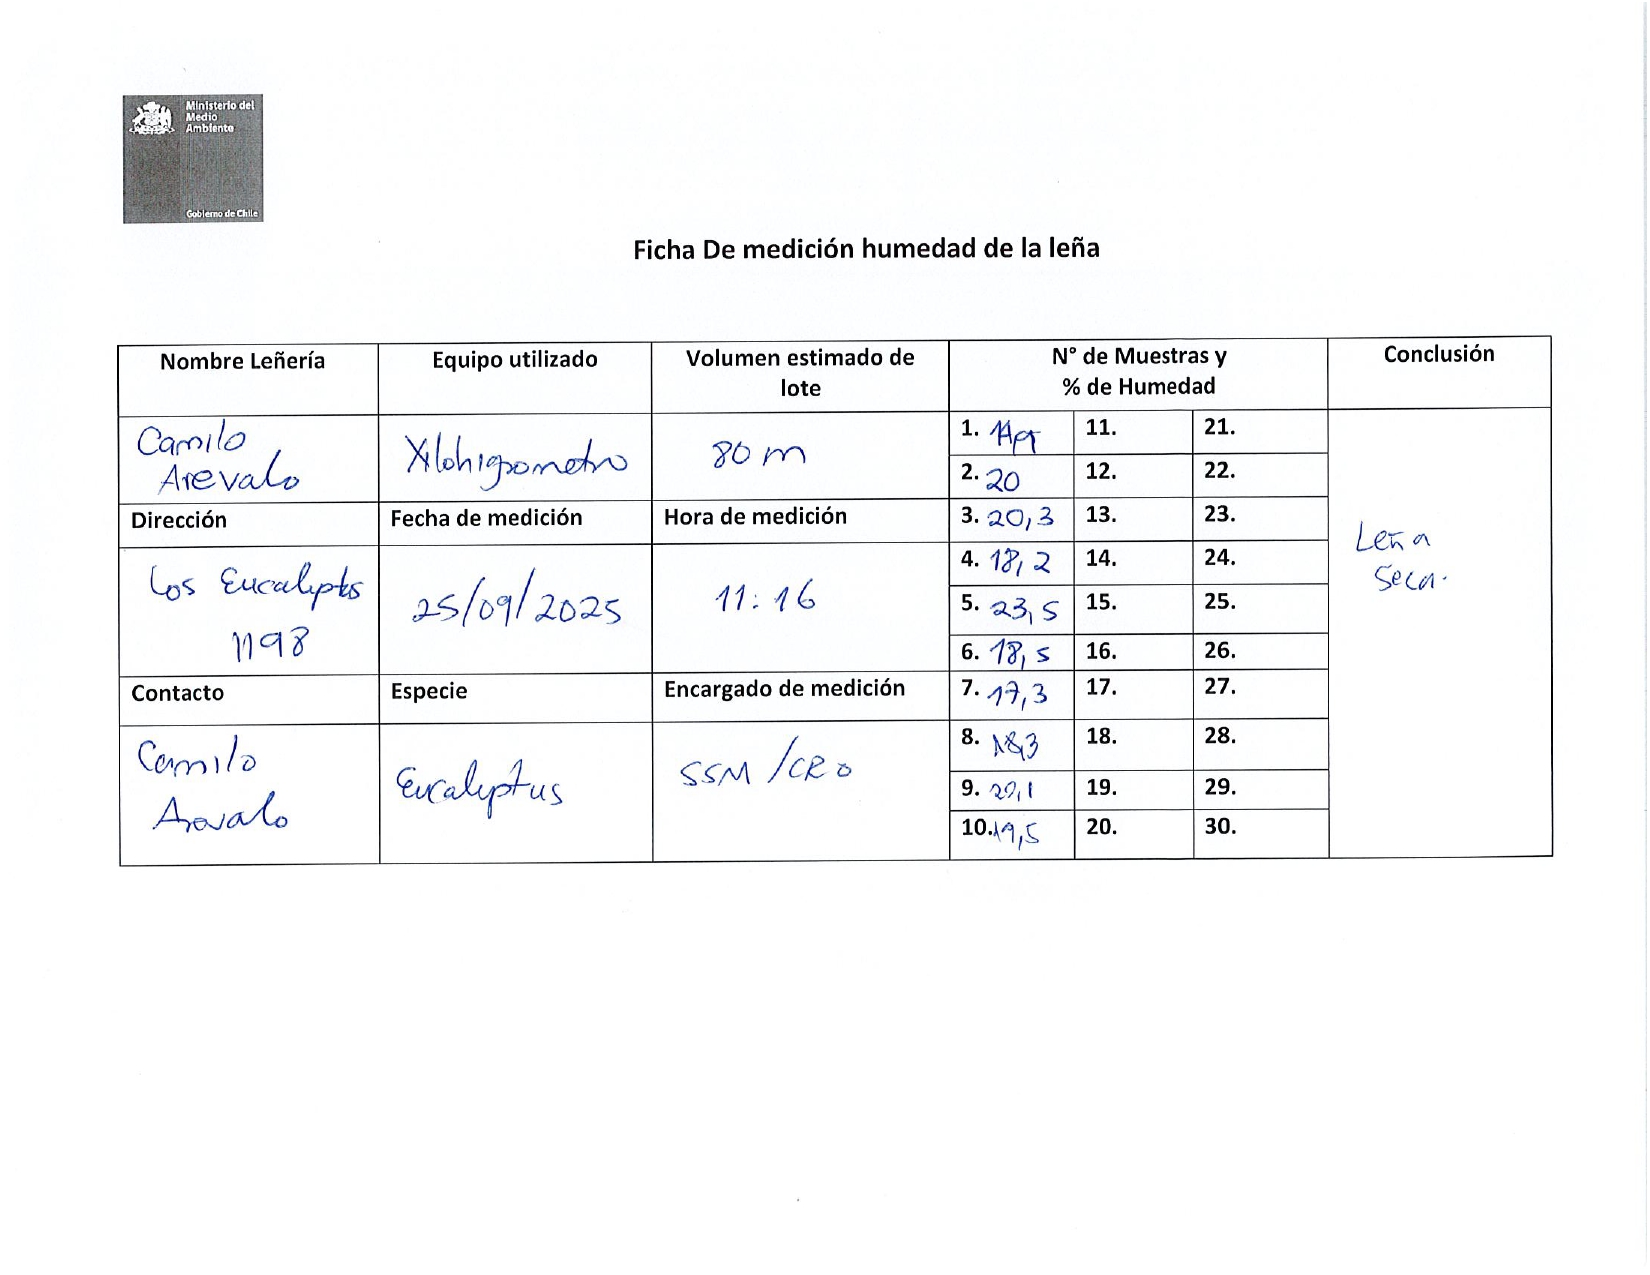 Ministerio del
Medio
Ambiente
Gobierno de Chile
Ficha De medición humedad de la leña
Nombre Leñería
Equipo utilizado
Volumen estimado de
lote
N° de Muestras y
% de Humedad
Conclusión
Camilo
Arevalo
Xilohigrometro
80 m
1.
11.
21.
2. 20
12.
22.
Dirección
Fecha de medición
Hora de medición
3. 20,3
13.
23.
Los Eucaliptos
1198
25/09/2025
11:16
4. 18,2
14.
24.
5. 23,5
15.
25.
6. 18,5
16.
26.
Leña
Seca.
Contacto
Especie
Encargado de medición
7. 17,3
17.
27.
Camilo
Arevalo
Eucalyptus
SSM/CRO
8. 18,3
18.
28.
9. 20,1
19.
29.
10. 19,5
20.
30.